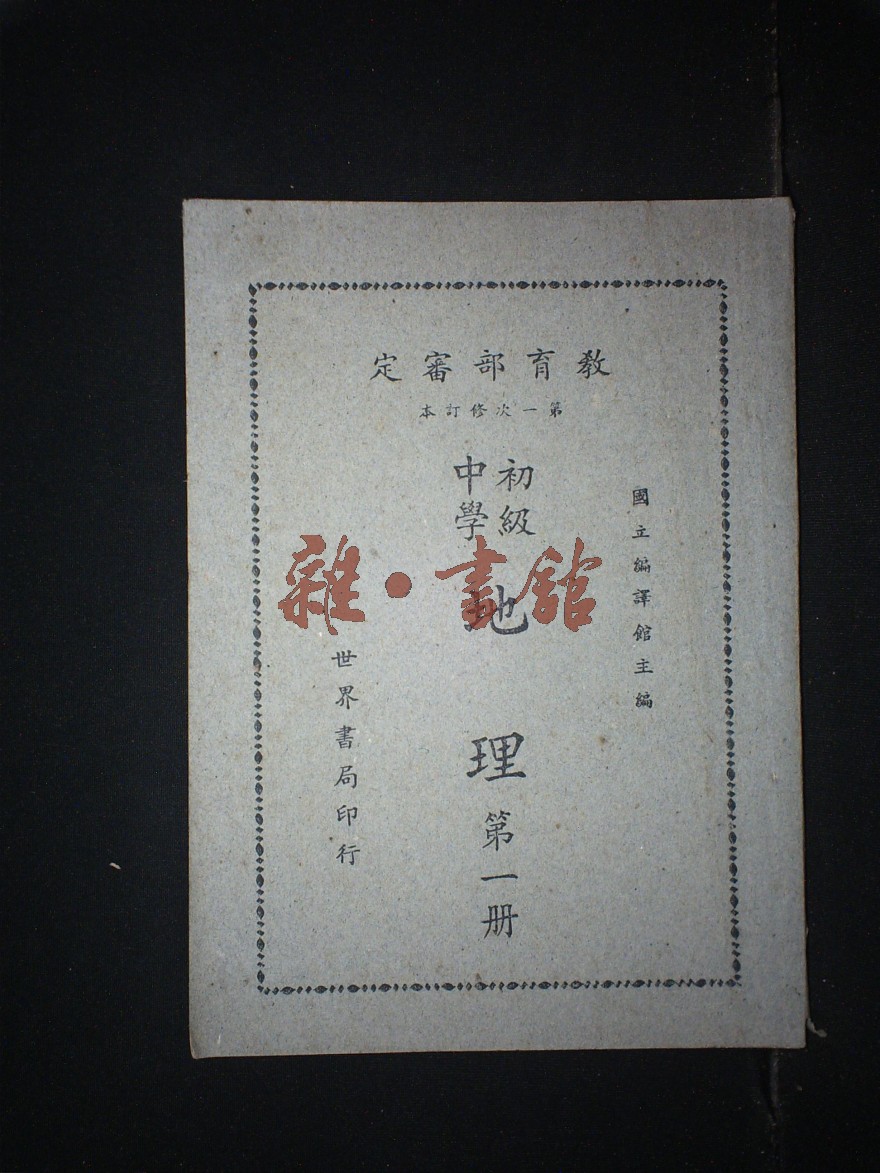 教育部審定
第一次修訂本
國立編譯館主編
初級
中學
地理第一册
世界書局印行
雜·書館